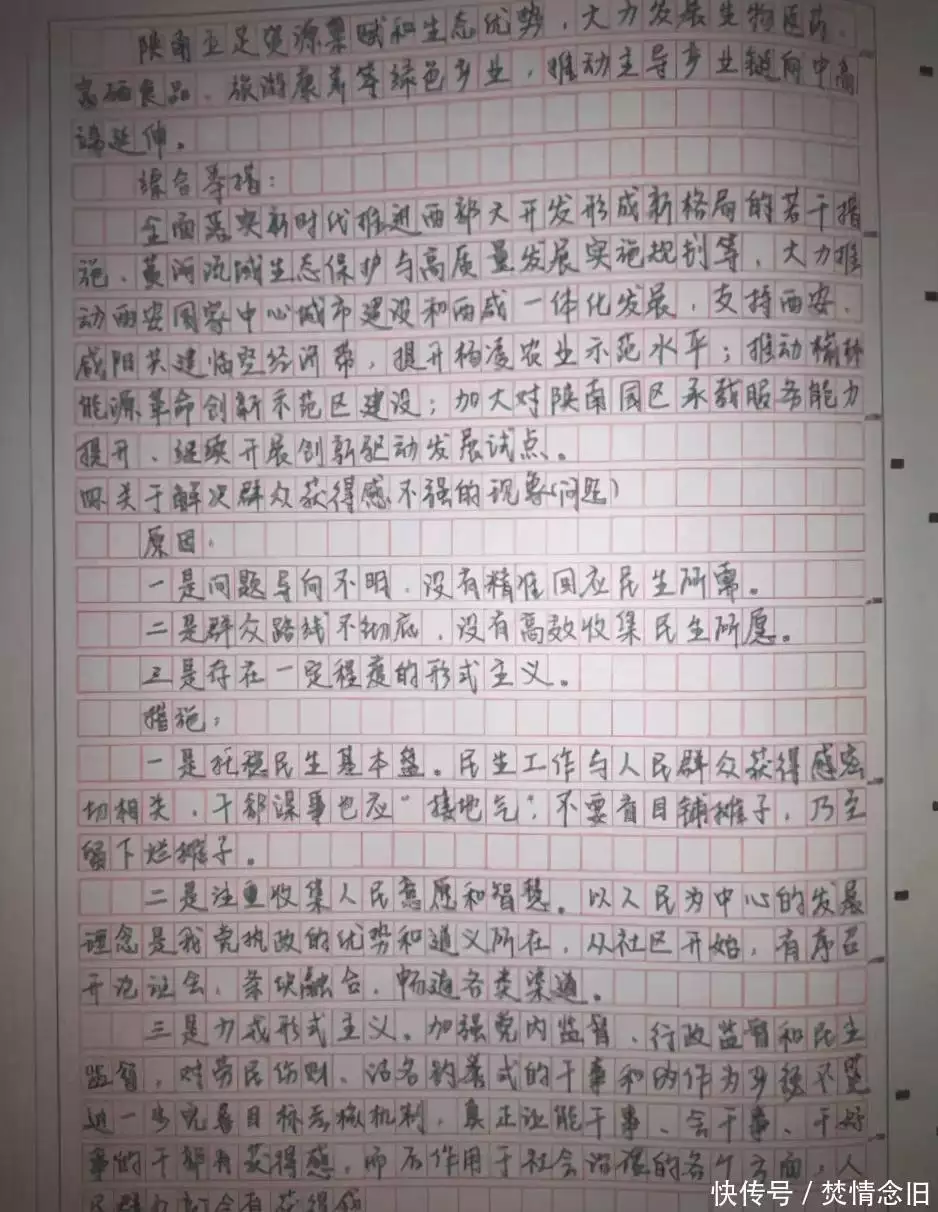 陕南立足资源禀赋和生态优势，大力发展生物医药、
富硒食品、旅游康养等绿色产业，推动主导产业链向中高
端延伸。
综合举措：
全面落实新时代推进西部大开发形成新格局的若干措
施、黄河流域生态保护与高质量发展实施规划等，大力推
动西安国家中心城市建设和西咸一体化发展，支持西安、
咸阳共建临空经济带，提升杨凌农业示范水平；推动榆林
能源革命创新示范区建设；加大对陕南园区承载服务能力
提升、继续开展创新驱动发展试点。
四关于解决群众获得感不强的现象（问题）
原因：
一是问题导向不明，没有精准回应民生所需。
二是群众路线不彻底，没有高效收集民生所愿。
三是存在一定程度的形式主义。
措施：
一是托稳民生基本盘。民生工作与人民群众获得感密
切相关，干部谋事也应“接地气”，不要盲目铺摊子，乃至
留下烂摊子。
二是注重收集人民意愿和智慧。以人民为中心的发展
理念是我党执政的优势和道义所在，从社区开始，有序召
开论证会，条块融合，畅通各类渠道。
三是力戒形式主义。加强党内监督、行政监督和民主
监督，对劳民伤财、沽名钓誉式的干事和的作为
进一步完善目标考核机制，真正让能干事、会干事、干好
事的干部有获得感，而后作用于社会治理的各个方面，人
民群众都会有获得感
快传号 / 焚情念旧